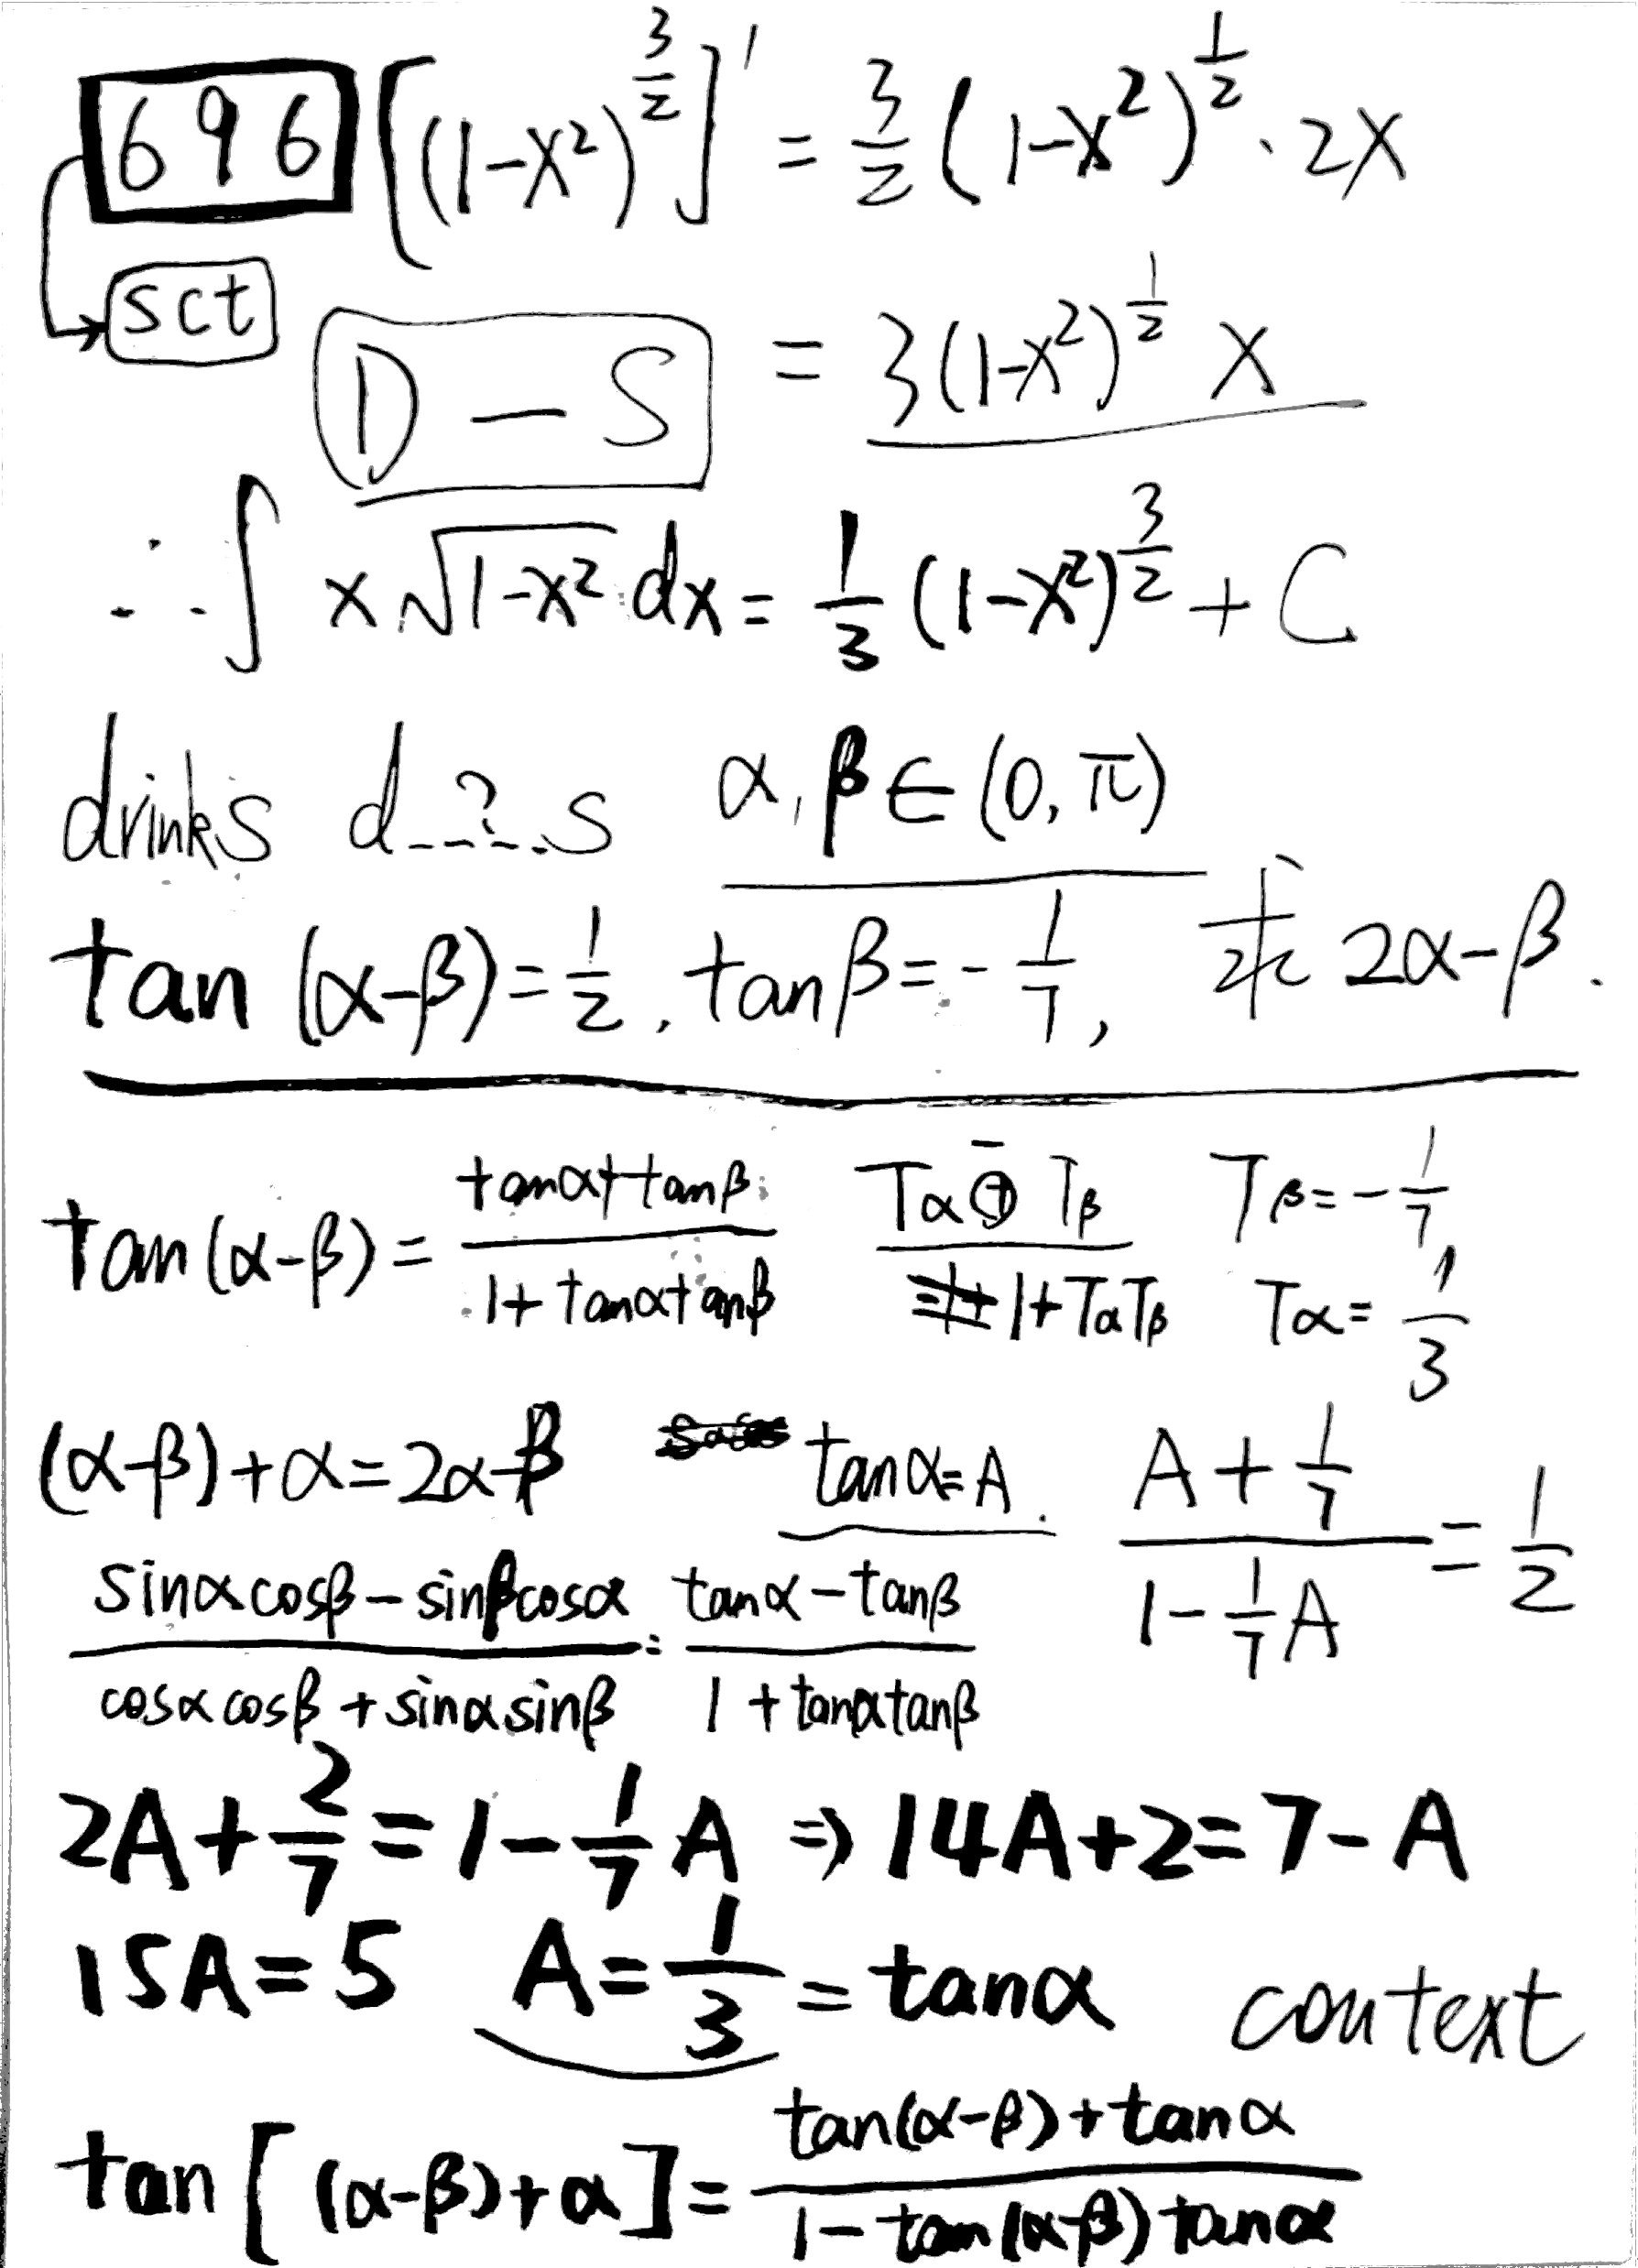 696 [(1-x²)^(3/2)]' = 3/2 (1-x²)^(1/2) · 2x
sct
D - S = 3(1-x²)^(1/2) x
∴ ∫ x√(1-x²) dx = 1/3 (1-x²)^(3/2) + C
drinks d--?--s α, β ∈ (0, π)
tan (α-β) = 1/2, tanβ = -1/7, 求 2α-β.
tan(α-β) = (tanα+tanβ)/(1+tanαtanβ) (Tα ⊕ Tβ)/(1+TαTβ) Tβ = -1/7, Tα = 1/3
(α-β)+α=2α-β tanα=A. (A + 1/7)/(1 - 1/7 A) = 1/2
(sinαcosβ - sinβcosα)/(cosαcosβ + sinαsinβ) = (tanα - tanβ)/(1 + tanαtanβ)
2A + 2/7 = 1 - 1/7 A ⇒ 14A+2=7-A
15A=5 A = 1/3 = tanα context
tan[(α-β)+α] = (tan(α-β)+tanα)/(1-tan(α-β)tanα)